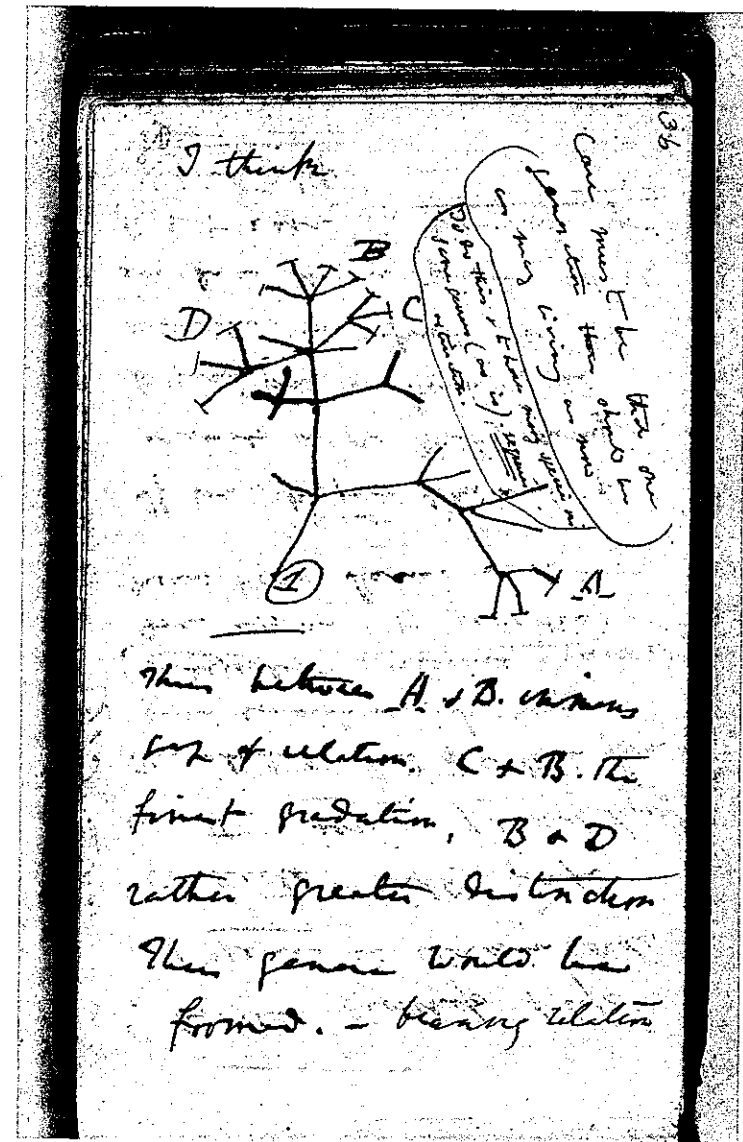 I think
36
Case must be that one
generation then should be
as many living as now
To do this & to have many species in
same genus (as is) requires
extinction.
B
D
C
A
1
Thus between A & B. immens
gap of relation. C & B. the
finest gradation, B & D
rather greater distinction
Thus genera would be
formed. – bearing relation